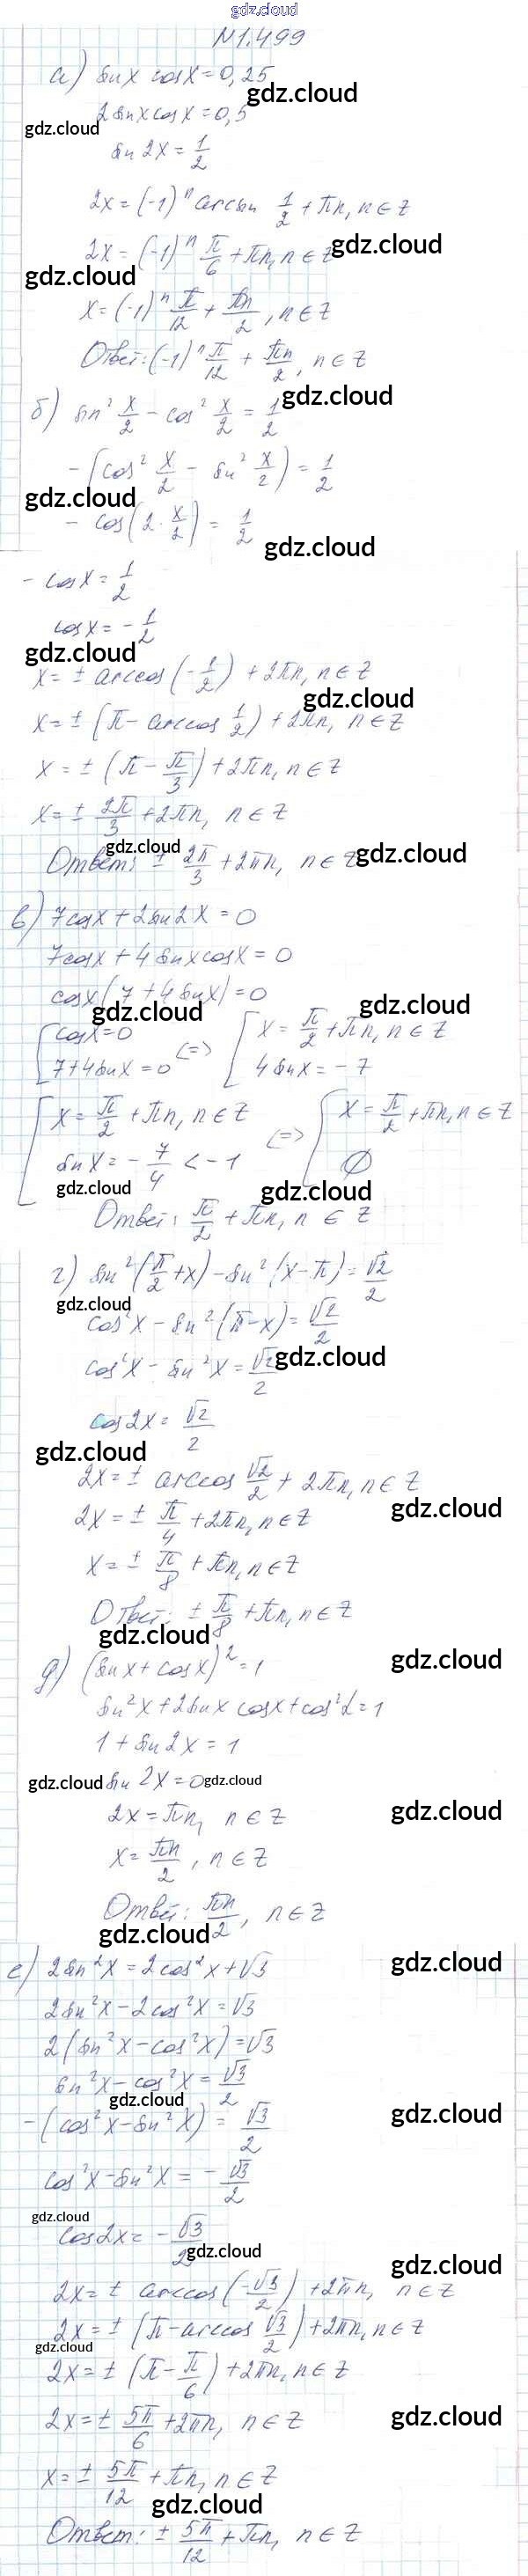 gdz.cloud
№1.499
а) sin x cos x = 0,25
gdz.cloud
2 sin x cos x = 0,5
gdz.cloud
sin 2x = 1/2
2x = (-1)^n arcsin 1/2 + πn, n ∈ Z
2x = (-1)^n π/6 + πn, n ∈ Z
gdz.cloud
gdz.cloud
x = (-1)^n π/12 + πn/2, n ∈ Z
Ответ: (-1)^n π/12 + πn/2, n ∈ Z
gdz.cloud
б) sin² x/2 - cos² x/2 = 1/2
-(cos² x/2 - sin² x/2) = 1/2
gdz.cloud
- cos(2 · x/2) = 1/2
gdz.cloud
- cos x = 1/2
cos x = - 1/2
gdz.cloud
x = ± arccos(-1/2) + 2πn, n ∈ Z
gdz.cloud
x = ± (π - arccos 1/2) + 2πn, n ∈ Z
x = ± (π - π/3) + 2πn, n ∈ Z
x = ± 2π/3 + 2πn, n ∈ Z
gdz.cloud
Ответ: ± 2π/3 + 2πn, n ∈ Z
gdz.cloud
в) 7cos x + 2 sin 2x = 0
7cos x + 4 sin x cos x = 0
cos x (7 + 4 sin x) = 0
gdz.cloud
gdz.cloud
[ cos x = 0 <=> [ x = π/2 + πn, n ∈ Z
7 + 4 sin x = 0 4 sin x = - 7
[ x = π/2 + πn, n ∈ Z <=> [ x = π/2 + πn, n ∈ Z
sin x = - 7/4 < -1 ∅
gdz.cloud
gdz.cloud
Ответ: π/2 + πn, n ∈ Z
г) sin²(π/2 + x) - sin²(x - π) = √2/2
gdz.cloud
cos² x - sin²(π - x) = √2/2
cos² x - sin² x = √2/2
gdz.cloud
cos 2x = √2/2
gdz.cloud
2x = ± arccos √2/2 + 2πn, n ∈ Z
gdz.cloud
2x = ± π/4 + 2πn, n ∈ Z
x = ± π/8 + πn, n ∈ Z
Ответ: ± π/8 + πn, n ∈ Z
gdz.cloud
gdz.cloud
д) (sin x + cos x)² = 1
sin² x + 2 sin x cos x + cos² x = 1
1 + sin 2x = 1
gdz.cloud
sin 2x = 0
gdz.cloud
2x = πn, n ∈ Z
gdz.cloud
x = πn/2, n ∈ Z
Ответ: πn/2, n ∈ Z
gdz.cloud
gdz.cloud
е) 2 sin² x = 2 cos² x + √3
2 sin² x - 2 cos² x = √3
2(sin² x - cos² x) = √3
sin² x - cos² x = √3/2
gdz.cloud
gdz.cloud
-(cos² x - sin² x) = √3/2
cos² x - sin² x = - √3/2
gdz.cloud
cos 2x = - √3/2
gdz.cloud
gdz.cloud
2x = ± arccos(-√3/2) + 2πn, n ∈ Z
2x = ± (π - arccos √3/2) + 2πn, n ∈ Z
gdz.cloud
2x = ± (π - π/6) + 2πn, n ∈ Z
2x = ± 5π/6 + 2πn, n ∈ Z
gdz.cloud
x = ± 5π/12 + πn, n ∈ Z
gdz.cloud
Ответ: ± 5π/12 + πn, n ∈ Z